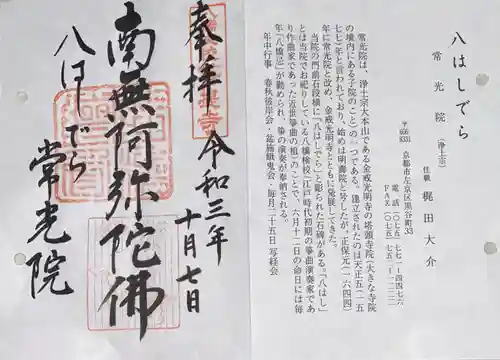 奉拝
令和三年
十月七日
南無阿弥陀佛
八はしでら
常光院
八はしでら
常光院 (浄土宗)
住職 梶田大介
〒606-8331 京都市左京区黒谷町33
電話(〇七五)七七一-四四七六
FAX(〇七五)七五一-
常光院は、浄土宗大本山である金戒光明寺の塔頭寺院(大きな寺院
の境内にある子院のこと)の一つである。建立されたのは天正五(一五
七七)年と言われており、始めは明壽院と号したが、正保元(一六四四)
年に常光院と改め、金戒光明寺とともに発展してきた。
当院の門前石段横に「八はしでら」と彫られた石碑がある。「八はし」
とは当院でお祀りしている八橋検校(江戸時代初期の箏曲演奏家であ
り作曲家であった近世箏曲の祖)のことで、六月十二日の命日には毎
年「八橋忌」が勤められ、箏の演奏が奉納される。
年中行事 春秋彼岸会・盆施餓鬼会・毎月二十五日写経会